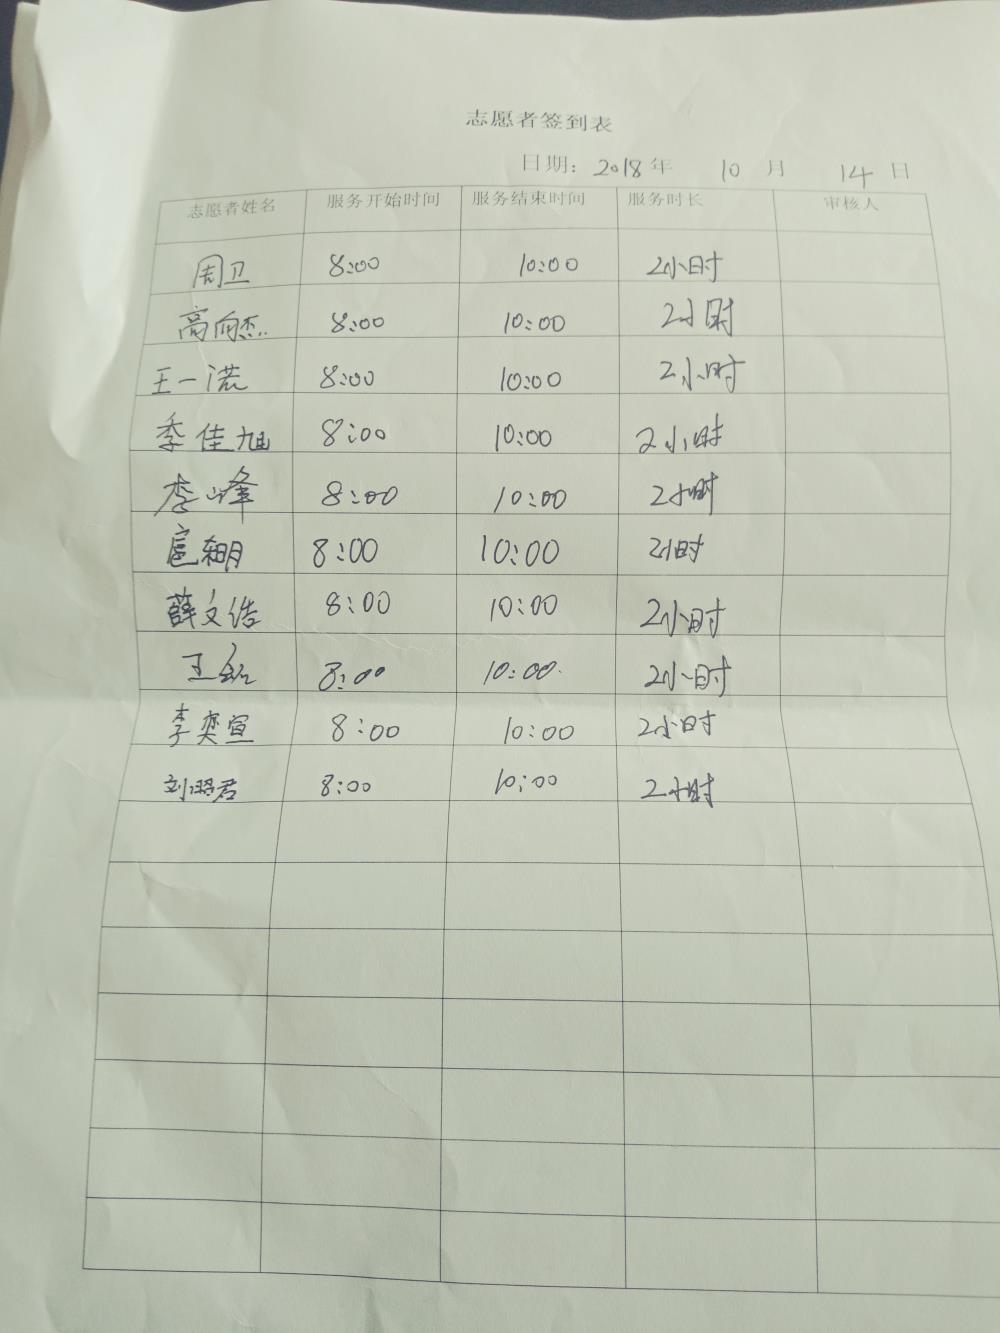 志愿者签到表
日期：2018年 10月 14日
志愿者姓名 服务开始时间 服务结束时间 服务时长 审核人
周卫 8:00 10:00 2小时
高向杰 8:00 10:00 2小时
王一 8:00 10:00 2小时
季佳旭 8:00 10:00 2小时
李峰 8:00 10:00 2小时
8:00 10:00 2小时
薛文浩 8:00 10:00 2小时
王 8:00 10:00 2小时
李奕宣 8:00 10:00 2小时
刘照君 8:00 10:00 2小时